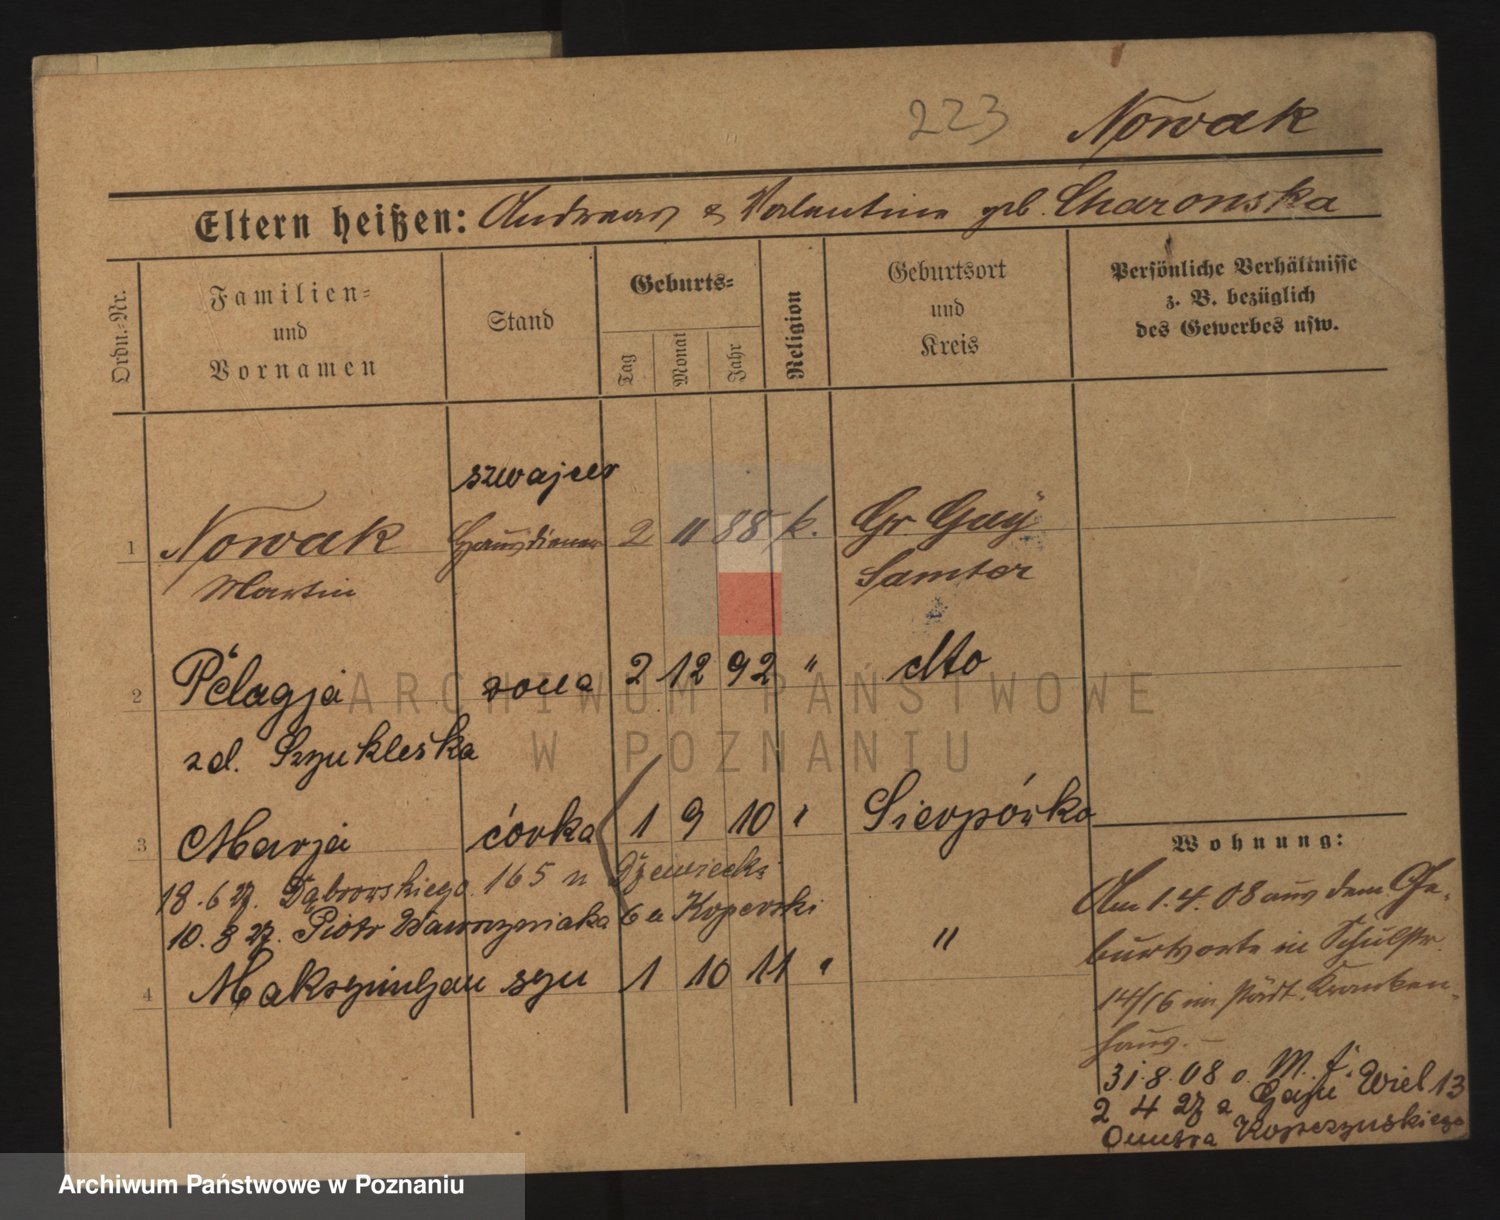 223
Nowak
Eltern heißen: Andreas & Valentine geb. Charonska
Ordn.-Nr.
Familien-
und
Vornamen
Stand
Geburts-
Tag
Monat
Jahr
Religion
Geburtsort
und
Kreis
Persönliche Verhältnisse
z. B. bezüglich
des Gewerbes usw.
szwajcer
1 Nowak Hausdiener 2 11 88 k. Gr. Gay
Martin Samter
2 Pelagja żona 2 12 92 " dto
zd. Szukleska
3 Marja córka 1 9 10 " Sierpówko
18. 6 27. Dąbrowskiego 165 u
10. 8 27. Piotr Wawrzyniaka 6 a Koperski
4 Maksymiljan syn 1 10 11 " "
Wohnung:
Am 1. 4. 08 aus dem Ge-
burtsorte in Schulstr.
14/16 im städt. Kranken-
haus. —
31. 8. 08 o.
2 4 27 z Gaju Wiel 13
Kopczyńskiego
ARCHIWUM PAŃSTWOWE
W POZNANIU
Archiwum Państwowe w Poznaniu